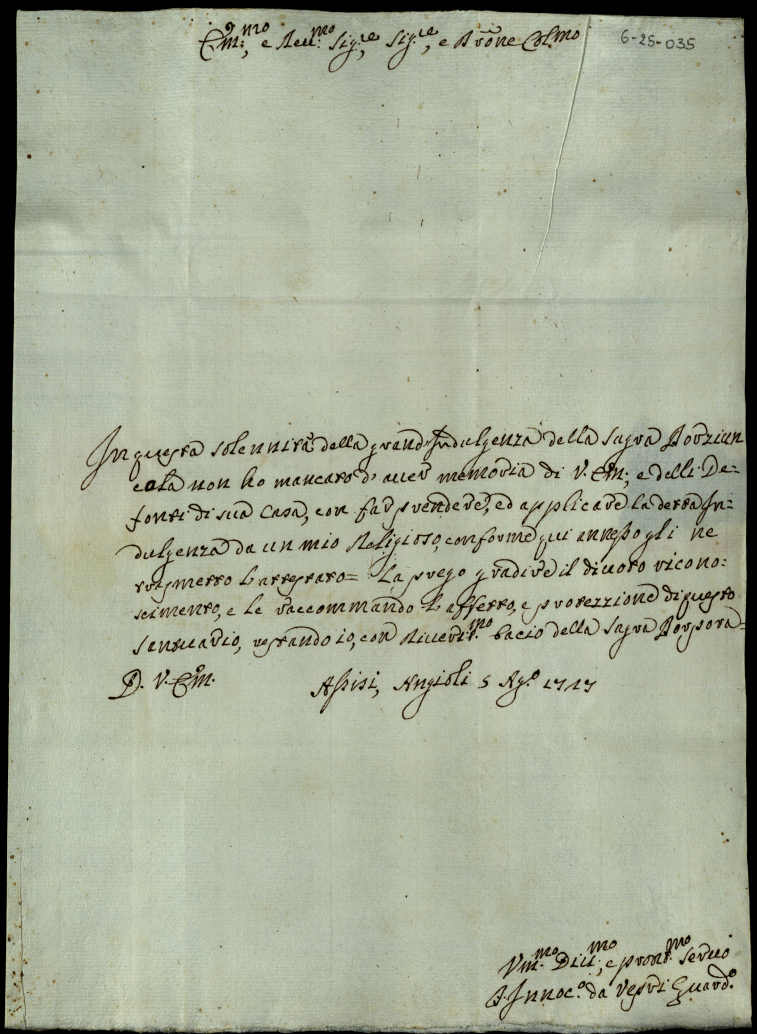 Em:mo, e Reu:mo Sig:re, Sig:re, e P̃rone Col:mo
6-25-035
In questa solennità della grand'Indulgenza della Sagra Porziun
cola non ho mancato d'auer memoria di V. Em:, e delli De=
fonti di sua Casa, con far prendere, ed applicare la detta In=
dulgenza da un mio Religioso, conforme qui annesso gli ne
trasmetto l'attestato= La prego gradire il diuoto ricono:
scimento, e le raccommando l'affetto, e protezzione di questo
Santuario, restando io, con Riuerti:mo bacio della Sagra Porpora=
D. V. Em. Assisi, Angioli 5 Ag:o 1717
Vm:mo Diu:mo, e pront:mo seruo
F. Innoc:o da Guard:o